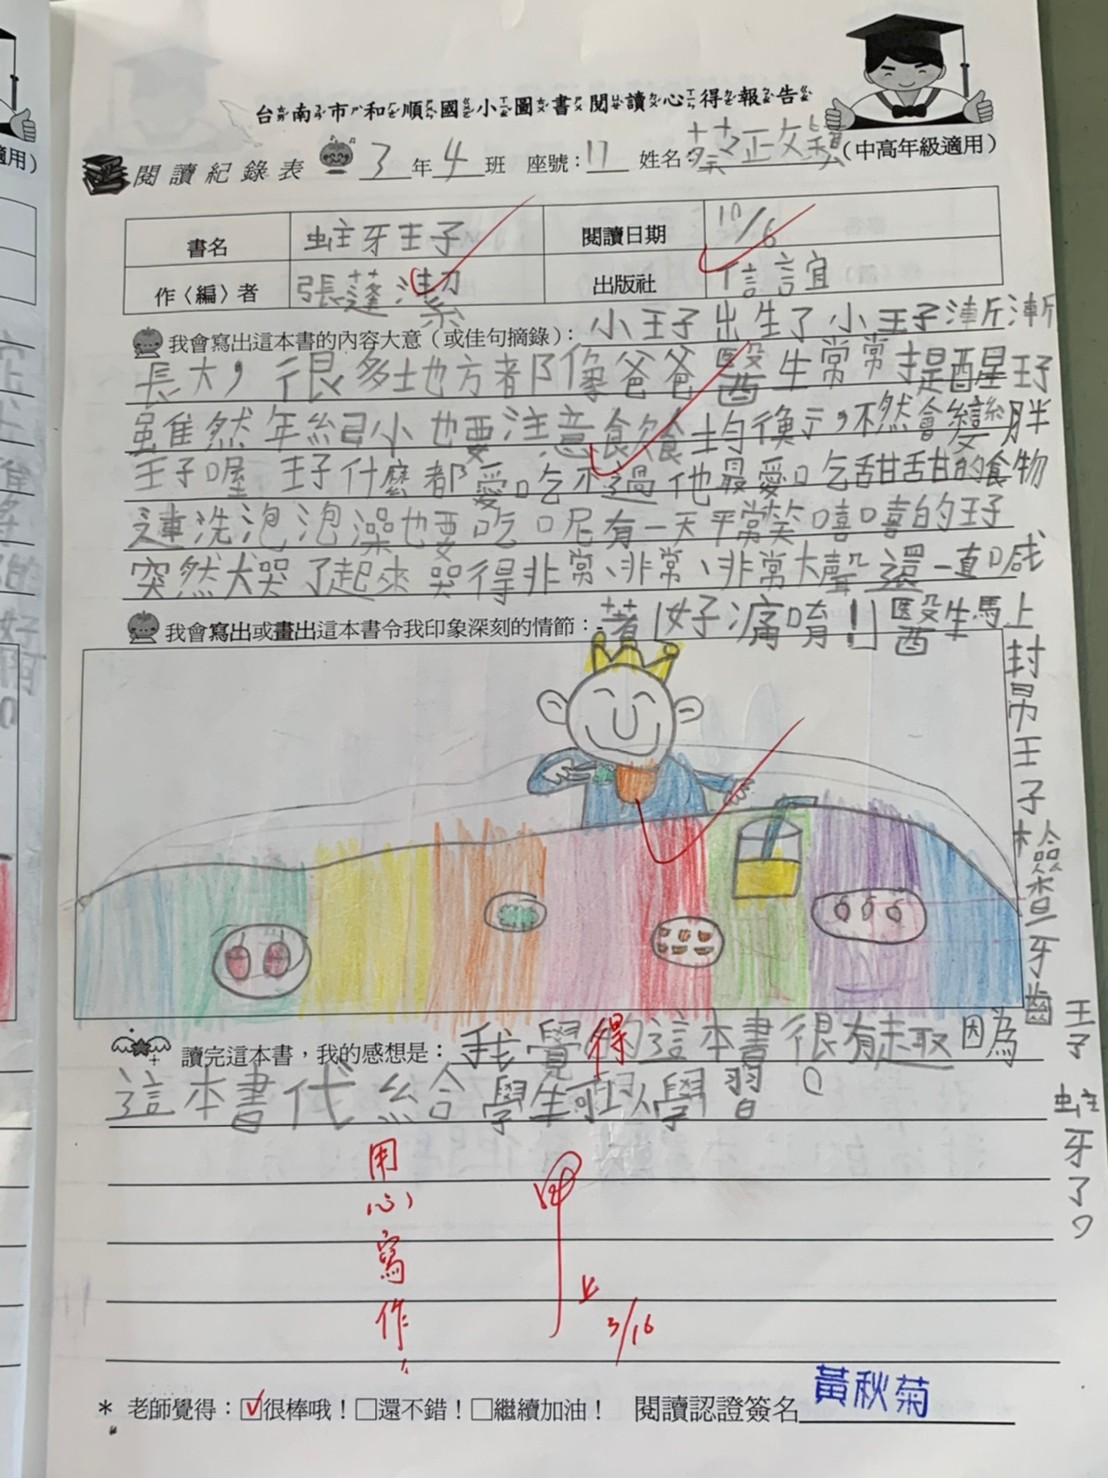 台南市和順國小圖書閱讀心得報告
閱讀紀錄表 3年4班 座號:17 姓名:蔡正文鎮(中高年級適用)
書名 蛀牙王子 閱讀日期 10/6
作〈編〉者 張蓬潔 出版社 信誼
我會寫出這本書的內容大意(或佳句摘錄): 小王子出生了小王子漸漸
長大,很多地方都像爸爸醫生常常提醒王子
雖然年紀小也要注意飲食均衡,不然會變胖
王子喔王子什麼都愛吃不過他最愛吃甜甜的食物
連洗泡泡澡也要吃呢有一天平常笑嘻嘻的王子
突然大哭了起來哭得非常、非常、非常大聲還一直喊
我會寫出或畫出這本書令我印象深刻的情節: 著「好痛唷!」醫生馬上
封帛王子檢查牙齒
王子蛀牙了。
讀完這本書,我的感想是: 我覺得的這本書很有趣因為
這本書代給學生可以學習。
用心寫作!
甲上
3/16
* 老師覺得:☑很棒哦!□還不錯!□繼續加油! 閱讀認證簽名 黃秋菊
適用)